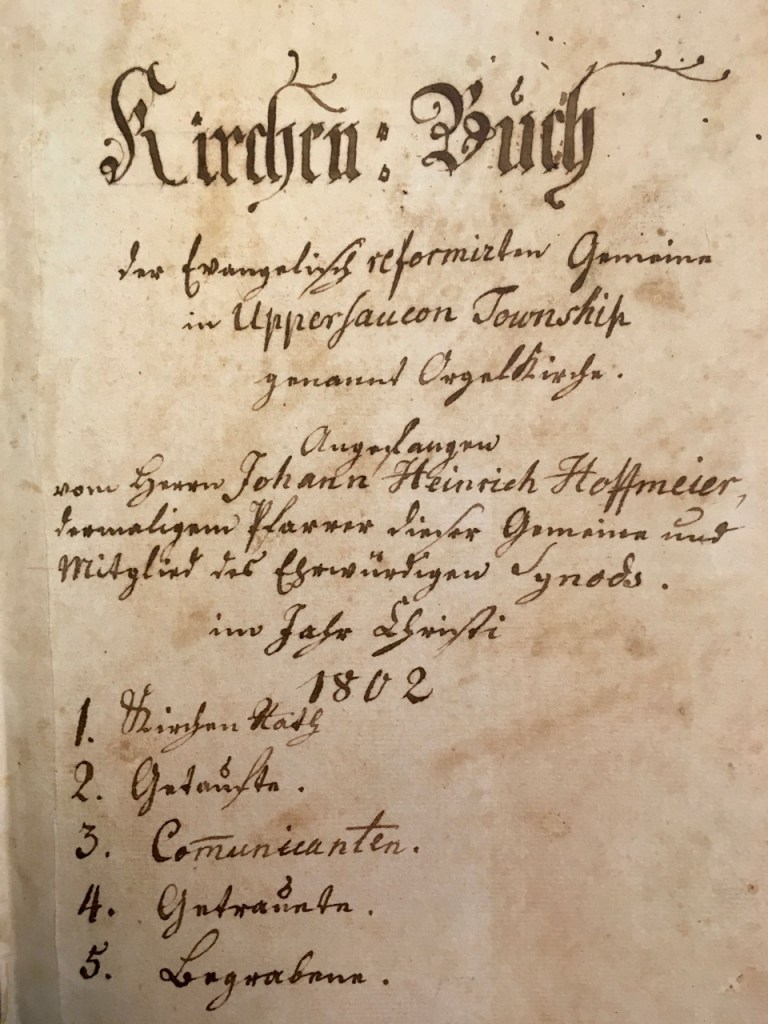 Kirchen: Buch
der Evangelisch reformirten Gemeine
in Uppersaucon Township
genannt OrgelKirche.
Angefangen
vom Herrn Johann Heinrich Hoffmeier,
dermaligem Pfarrer dieser Gemeine und
Mitglied des Ehrwürdigen Synods.
im Jahr Christi
1802
1. Kirchen Rath
2. Getaufte.
3. Com̅unicanten.
4. Getrauete.
5. Begrabene.